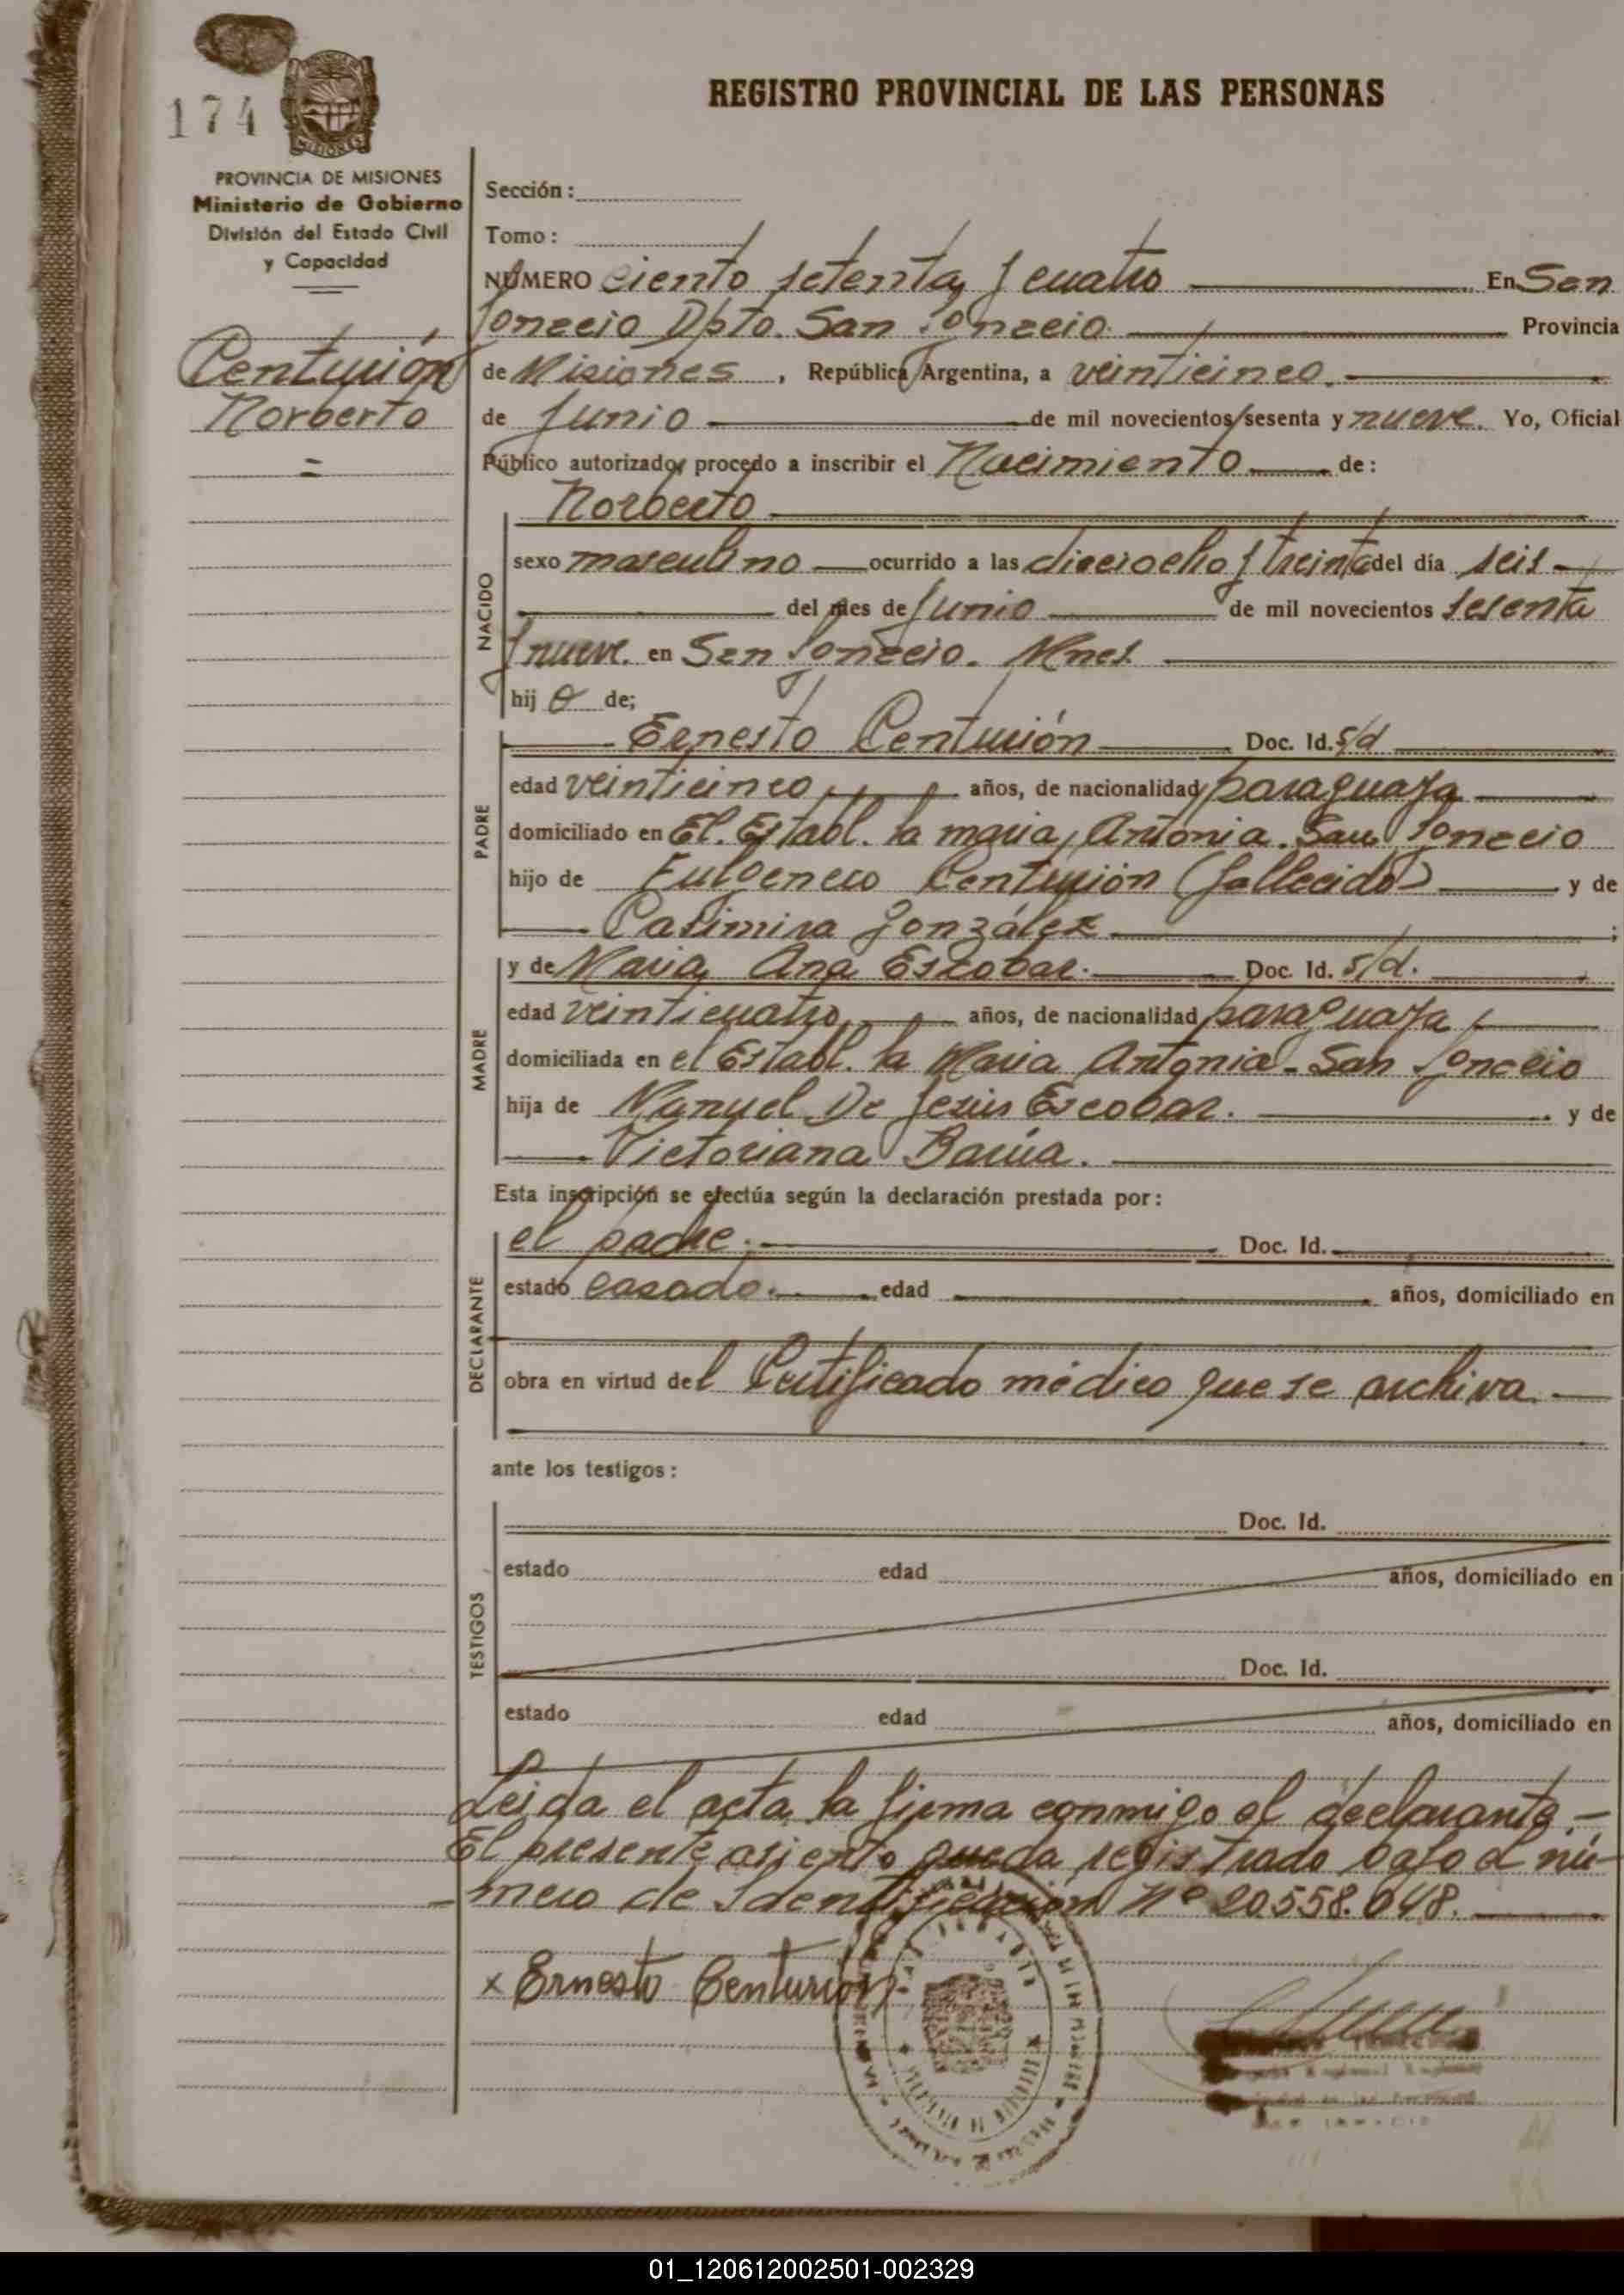 174
MISIONES
PROVINCIA DE MISIONES
Ministerio de Gobierno
División del Estado Civil
y Capacidad
Centurión
Norberto
REGISTRO PROVINCIAL DE LAS PERSONAS
Sección :
Tomo :
NÚMERO ciento setenta y cuatro En San
Ignacio Dpto. San Ignacio. Provincia
de Misiones , República Argentina, a veinticinco.
de Junio de mil novecientos sesenta y nueve. Yo, Oficial
Público autorizado, procedo a inscribir el Nacimiento de :
Norberto
NACIDO
sexo masculino ocurrido a las dieciocho y treinta del día seis
del mes de Junio de mil novecientos sesenta
y nueve. en San Ignacio. Mnes.
hij o de;
PADRE
Ernesto Centurión Doc. Id. s/d
edad veinticinco años, de nacionalidad paraguaya
domiciliado en El. Establ. la maria Antonia. San Ignacio
hijo de Fulgencio Centurión (fallecido) y de
Casimira González ;
MADRE
y de Maria Ana Escobar. Doc. Id. s/d.
edad veinticuatro años, de nacionalidad paraguaya
domiciliada en el Establ. la Maria Antonia - San Ignacio
hija de Manuel De Jesús Escobar. y de
Victoriana Barúa.
Esta inscripción se efectúa según la declaración prestada por :
DECLARANTE
el padre. Doc. Id.
estado casado. edad años, domiciliado en
obra en virtud del Certificado médico que se archiva
ante los testigos :
TESTIGOS
Doc. Id.
estado edad años, domiciliado en
Doc. Id.
estado edad años, domiciliado en
Leida el acta, la firma conmigo el declarante. -
El presente asiento queda registrado bajo el nú-
mero de Identificación Nº 20.558.048.
x Ernesto Centurión
01_120612002501-002329